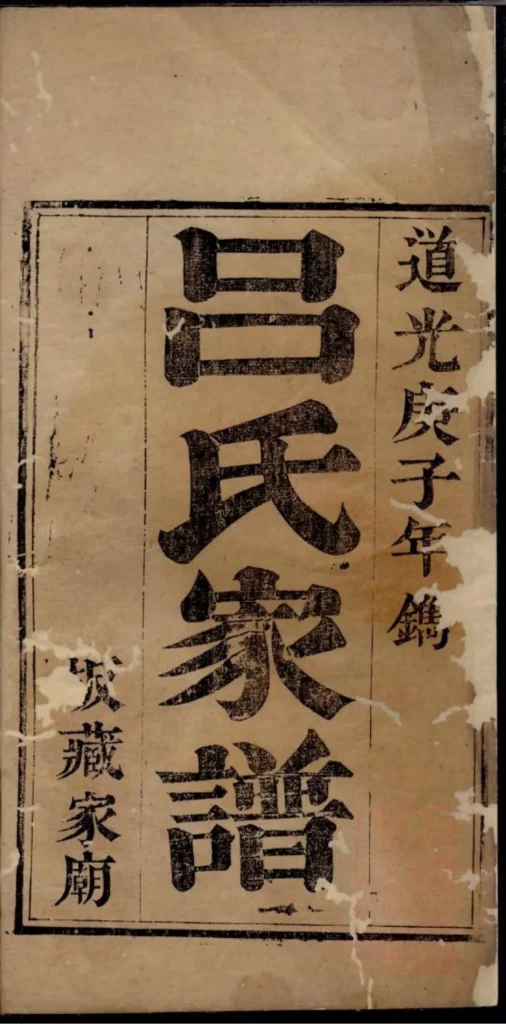 道光庚子年鐫
吕氏家譜
藏家廟